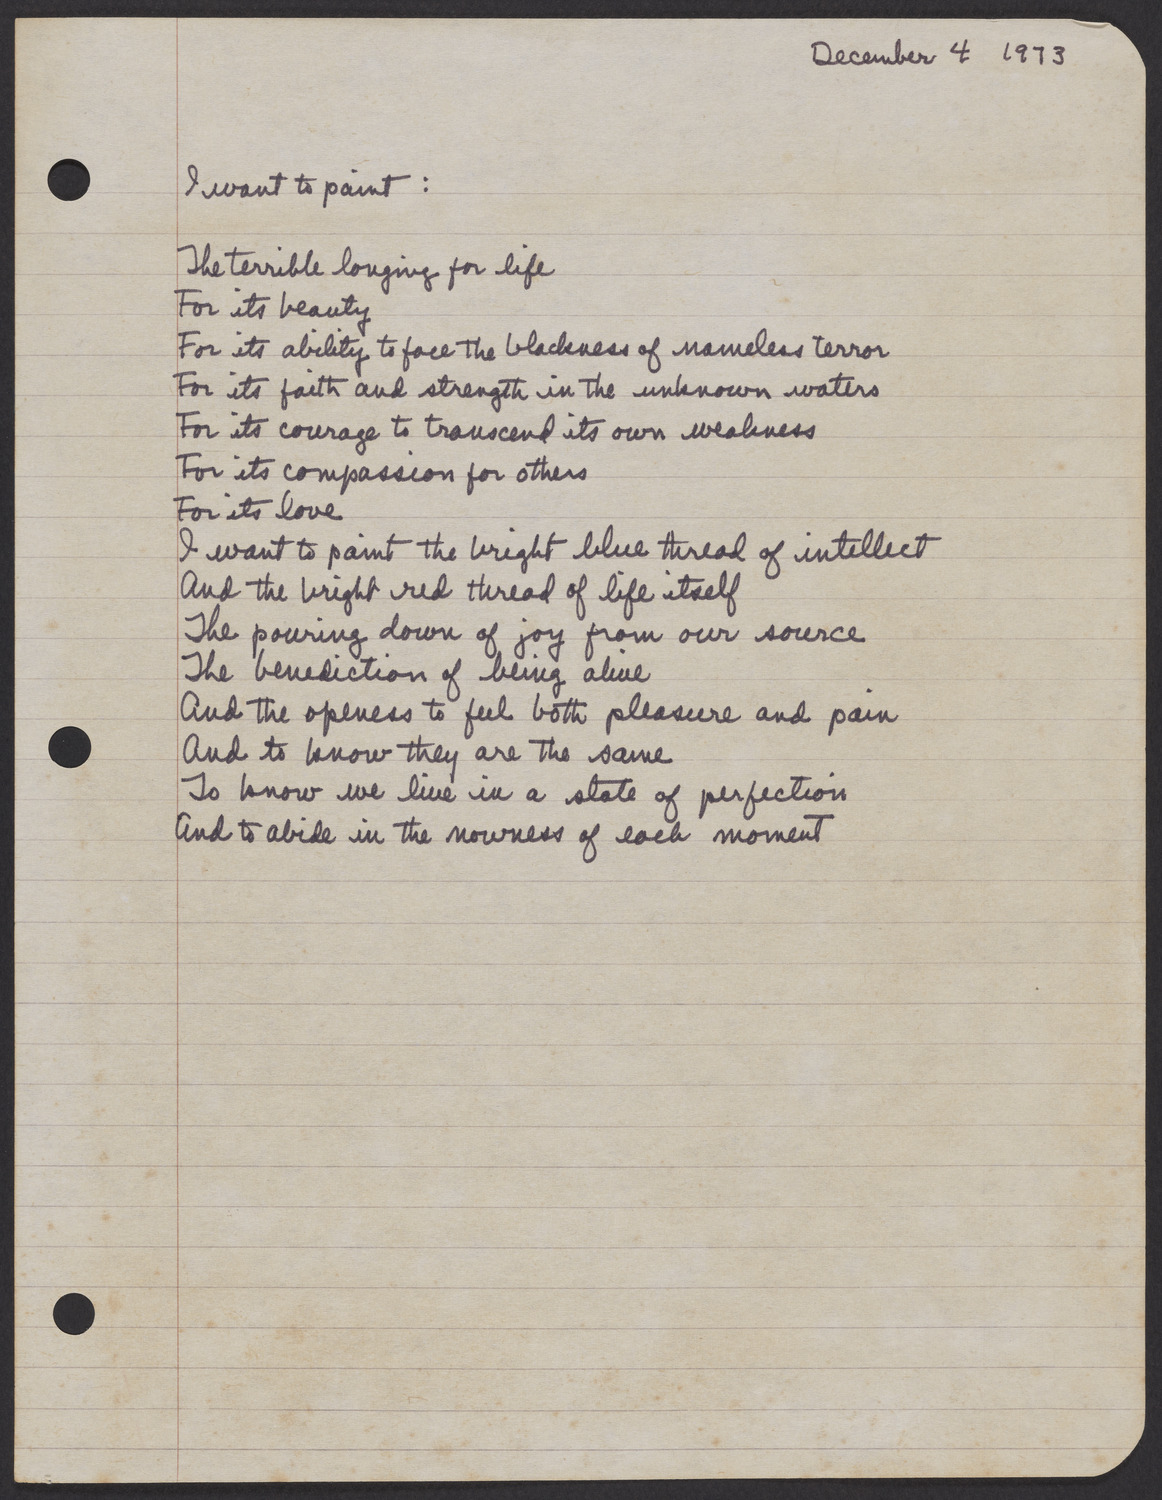 December 4 1973
I want to paint :
The terrible longing for life
For its beauty
For its ability to face the blackness of nameless terror
For its faith and strength in the unknown waters
For its courage to transcend its own weakness
For its compassion for others
For its love
I want to paint the bright blue thread of intellect
And the bright red thread of life itself
The pouring down of joy from our source
The benediction of being alive
And the openess to feel both pleasure and pain
And to know they are the same
To know we live in a state of perfection
And to abide in the nowness of each moment